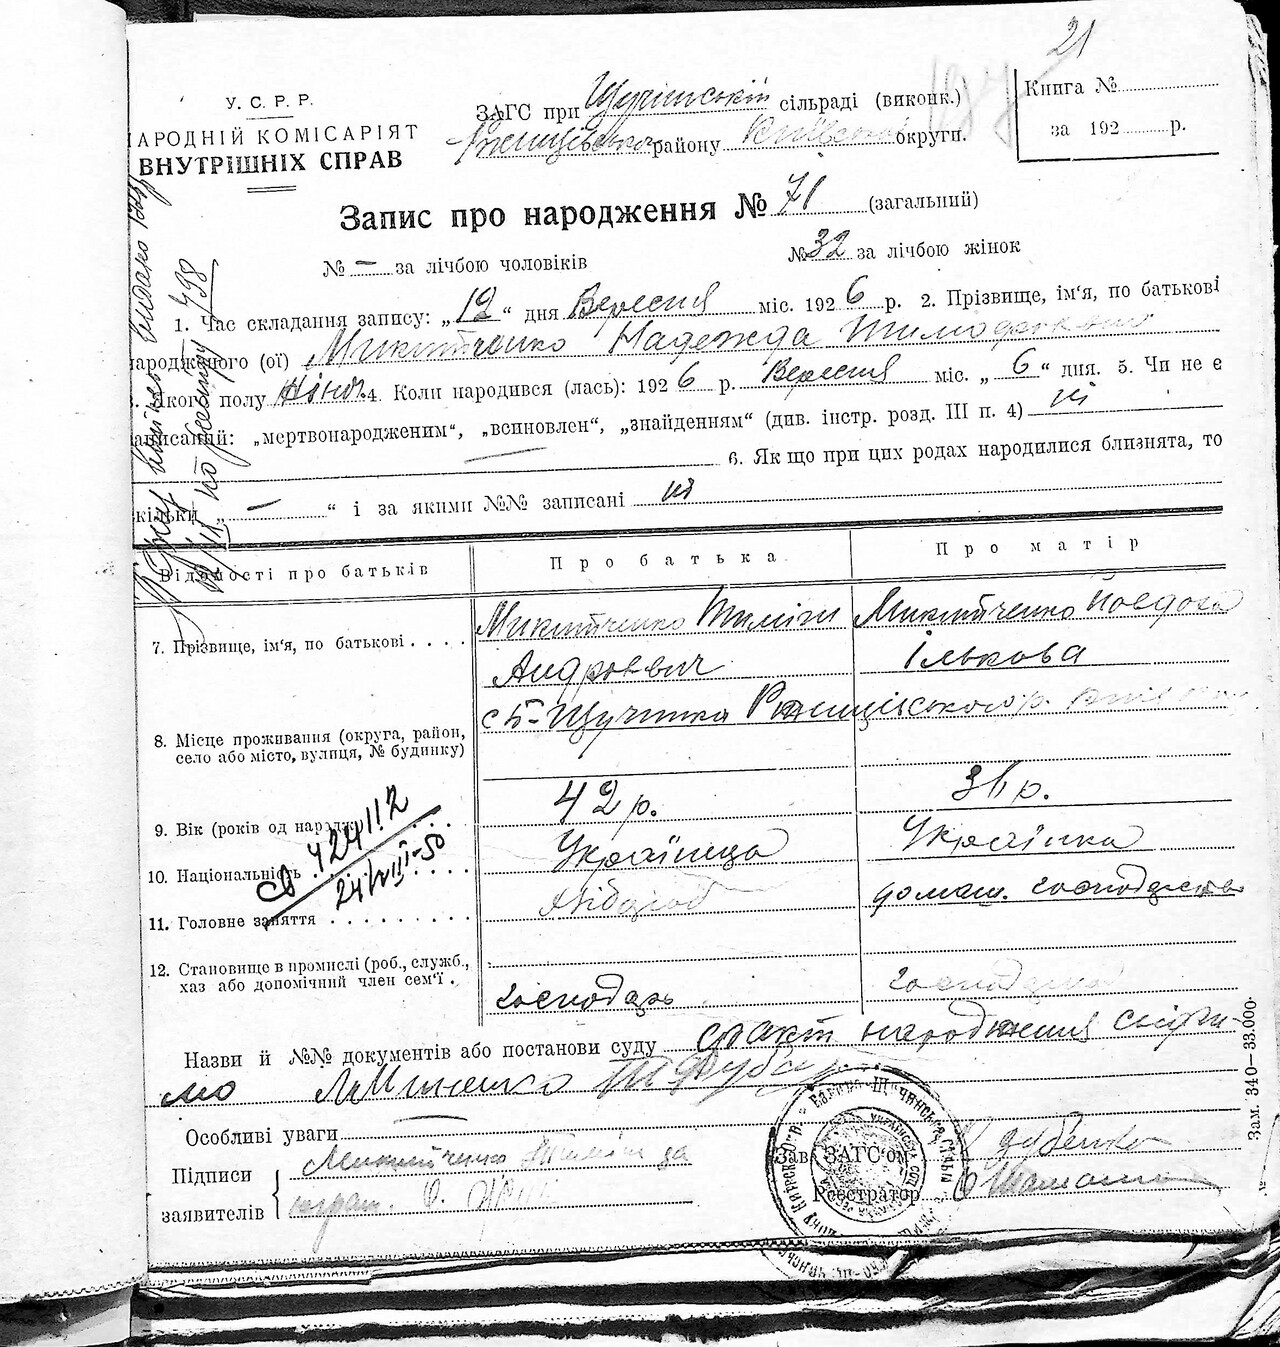 21
У. С. Р. Р.
НАРОДНІЙ КОМІСАРІЯТ
ВНУТРІШНІХ СПРАВ
ЗАГС при Щучинській сільраді (виконк.)
Ржищівського району Київської округи.
Книга №
за 192 р.
Запис про народження № 71 (загальний)
№ — за лічбою чоловіків
№ 32 за лічбою жінок
1. Час складання запису: „12“ дня Вересня міс. 1926 р. 2. Прізвище, ім'я, по батькові
народженого (ої) Микитченко Надежда Тимофієвна
3. Якого полу жіноч. 4. Коли народився (лась): 1926 р. Вересня міс. „6“ дня. 5. Чи не є
записаний: „мертвонародженим“, „всиновлен“, „знайденням“ (див. інстр. розд. III п. 4) ні
6. Якщо при цих родах народилися близнята, то
скільки „ — “ і за якими №№ записані ні
Відомості про батьків
Про батька
Про матір
7. Прізвище, ім'я, по батькові . . . .
Микитченко Тиміш
Андрієвич
Микитченко Явдоха
Ількова
8. Місце проживання (округа, район,
село або місто, вулиця, № будинку)
с Б-Щучинка Ржищівського р.
9. Вік (років од народж.)
42 р.
36 р.
10. Національність
Українець
Українка
11. Головне заняття . . . . . . . . .
Хлібороб
домаш. господарство
12. Становище в промислі (роб., служб.,
хаз або допомічний член сем'ї .
господарь
424112
24/VIII-50
Назви й №№ документів або постанови суду факт народження
Особливі уваги
Підписи
заявителів
Микитченко Тиміш за
неграм.
Зав. ЗАГС'ом
Дубенко
Реєстратор
Зам. 340—33.000.